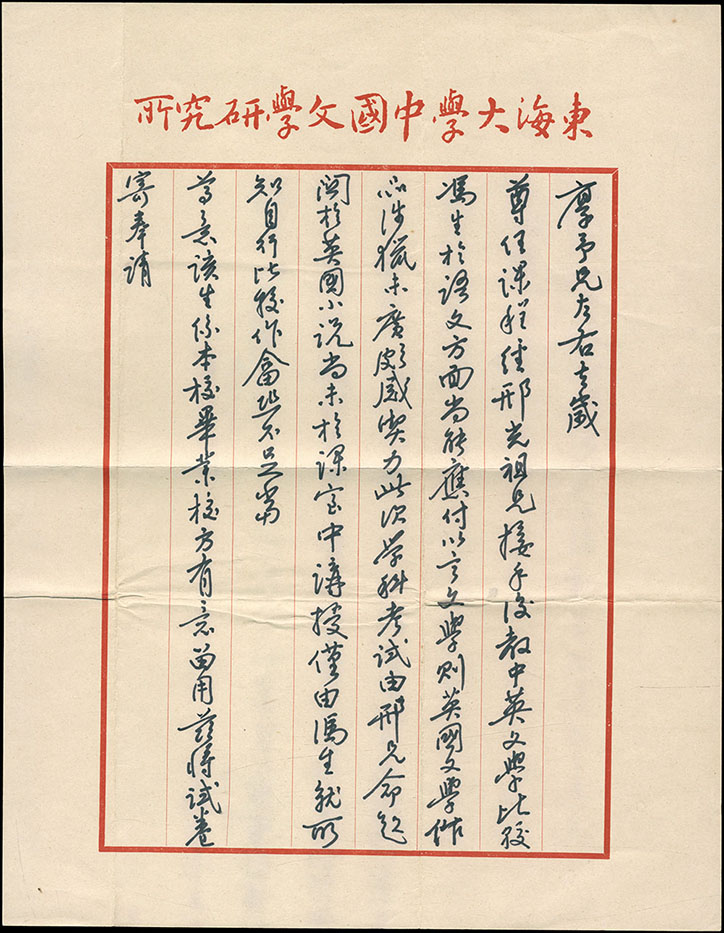 東海大學中國文學研究所
厚予兄左右去歲
尊任課程經邢光祖兄接手後教中英文學比較
馮生於語文方面尚能應付以言文學則英國文學作
品涉獵未廣頗感喫力此次學科考試由邢兄命題
關於英國小說尚未於課室中講授僅由馮生就所
知自行比較作答 不足當
尊意該生係本校畢業校方有意留用茲將試卷
寄奉請